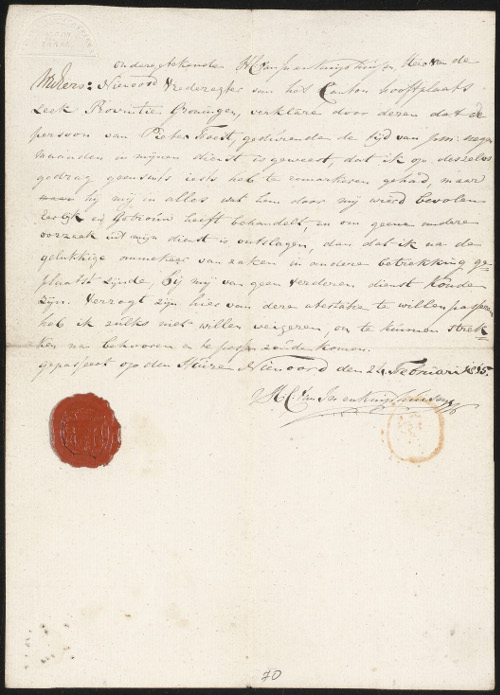 ondergetekende H C van
Nienoord Vrederegter van het Canton hooftplaats
Leek Provintie Groningen, verklare door deren dat de
persoon van Pieter Feest, gedurende de tijd van negen
maanden in mijnen dienst is geweest, dat ik op deszelvs
gedrag geensints iets heb te remarkeren gehad, maar
hij mij in alles wat hem door mij wierd bevolen
eerlijk en getrouw heeft behandelt, en om geene andere
oorzaak uit mijn dienst is ontslagen, dan dat ik na de
gelukkige ommekeer van zaken in andere betrekking ge-
plaatst zijnde, hij mij van geen verderen dienst konde
zijn. Verzogt zijn hier van dere atestatie te willen passeren
heb ik zulks niet willen weigeren, om te kunnen strek-
ken na behooren
gepasseert op den Huize Nienoord den 24 Februari
H. C. van
70